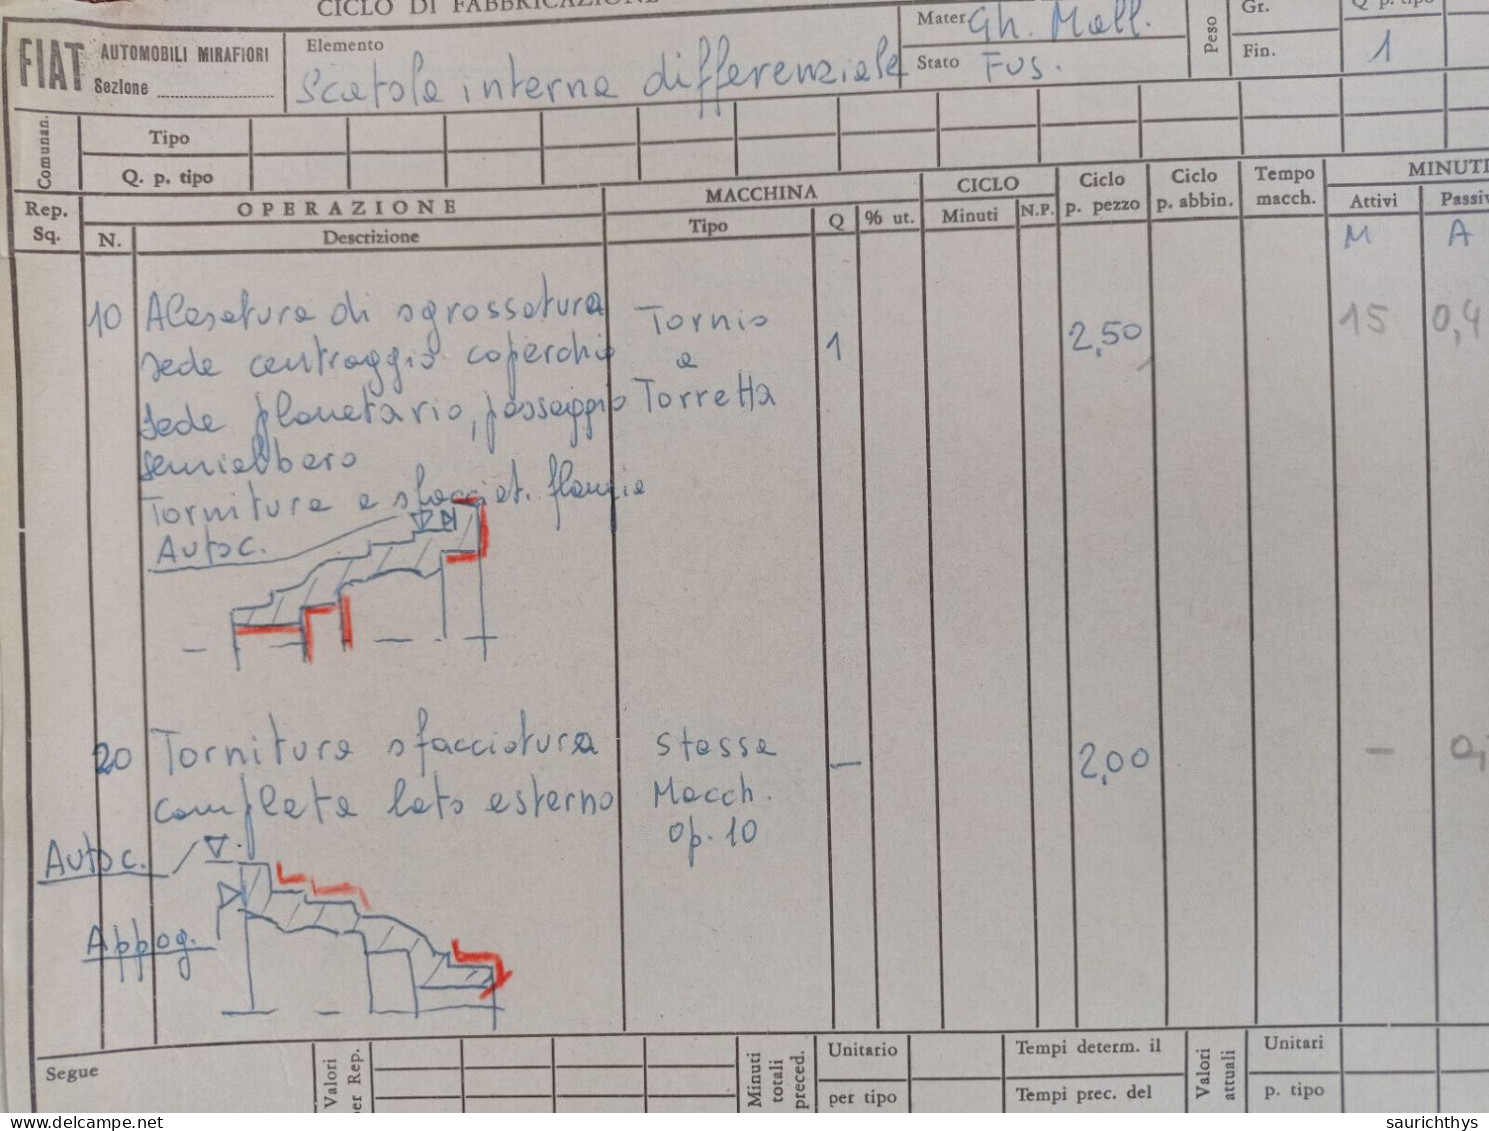 CICLO DI FABBRICAZIONE
FIAT AUTOMOBILI MIRAFIORI
Sezione
Elemento
Scatola interna differenziale
Mater. Gh. Mall.
Stato Fus.
Peso
Gr.
Fin.
Q p. tipo
1
Comunan.
Tipo
Q. p. tipo
Rep.
Sq.
OPERAZIONE
N.
Descrizione
MACCHINA
Tipo
Q
% ut.
CICLO
Minuti
N.P.
Ciclo
p. pezzo
Ciclo
p. abbin.
Tempo
macch.
MINUTI
Attivi
Passiv
M
A
10 Alesatura di sgrossatura
sede centraggio coperchio
sede planetario, passaggio
semialbero
Tornitura e sfacciat. flangia
Autoc.
Tornio
a
Torretta
1
2,50
15
0,4
20 Tornitura sfacciatura
completa lato esterno
Autoc.
Appog.
Stessa
Macch.
op. 10
—
2,00
-
0,
Segue
Valori
per Rep.
Minuti
totali
preced.
Unitario
per tipo
Tempi determ. il
Tempi prec. del
Valori
attuali
Unitari
p. tipo
www.delcampe.net
saurichthys